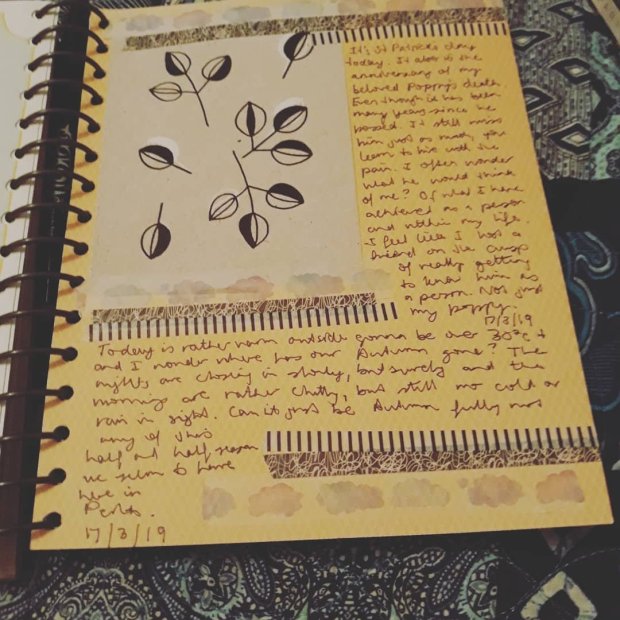 It's St Patricks day
today. It also is the
anniversary of my
beloved Poppy's death.
Even though it has been
many years since he
passed. I still miss
him just as much, you
learn to live with the
pain. I often wonder
what he would think
of me? Of what I have
achieved as a person
and within my life.
I feel like I lost a
friend on the cusp
of really getting
to know him as
a person. Not just
my poppy.
17/3/19
Today is rather warm outside gonna be over 30°c +
and I wonder where has our Autumn gone? The
nights are closing in slowly, but surely and the
mornings are rather chilly, but still no cold or
rain in sight. Can it just be Autumn fully not
any of this
half and half season
we seem to have
here in
Perth.
17/3/19